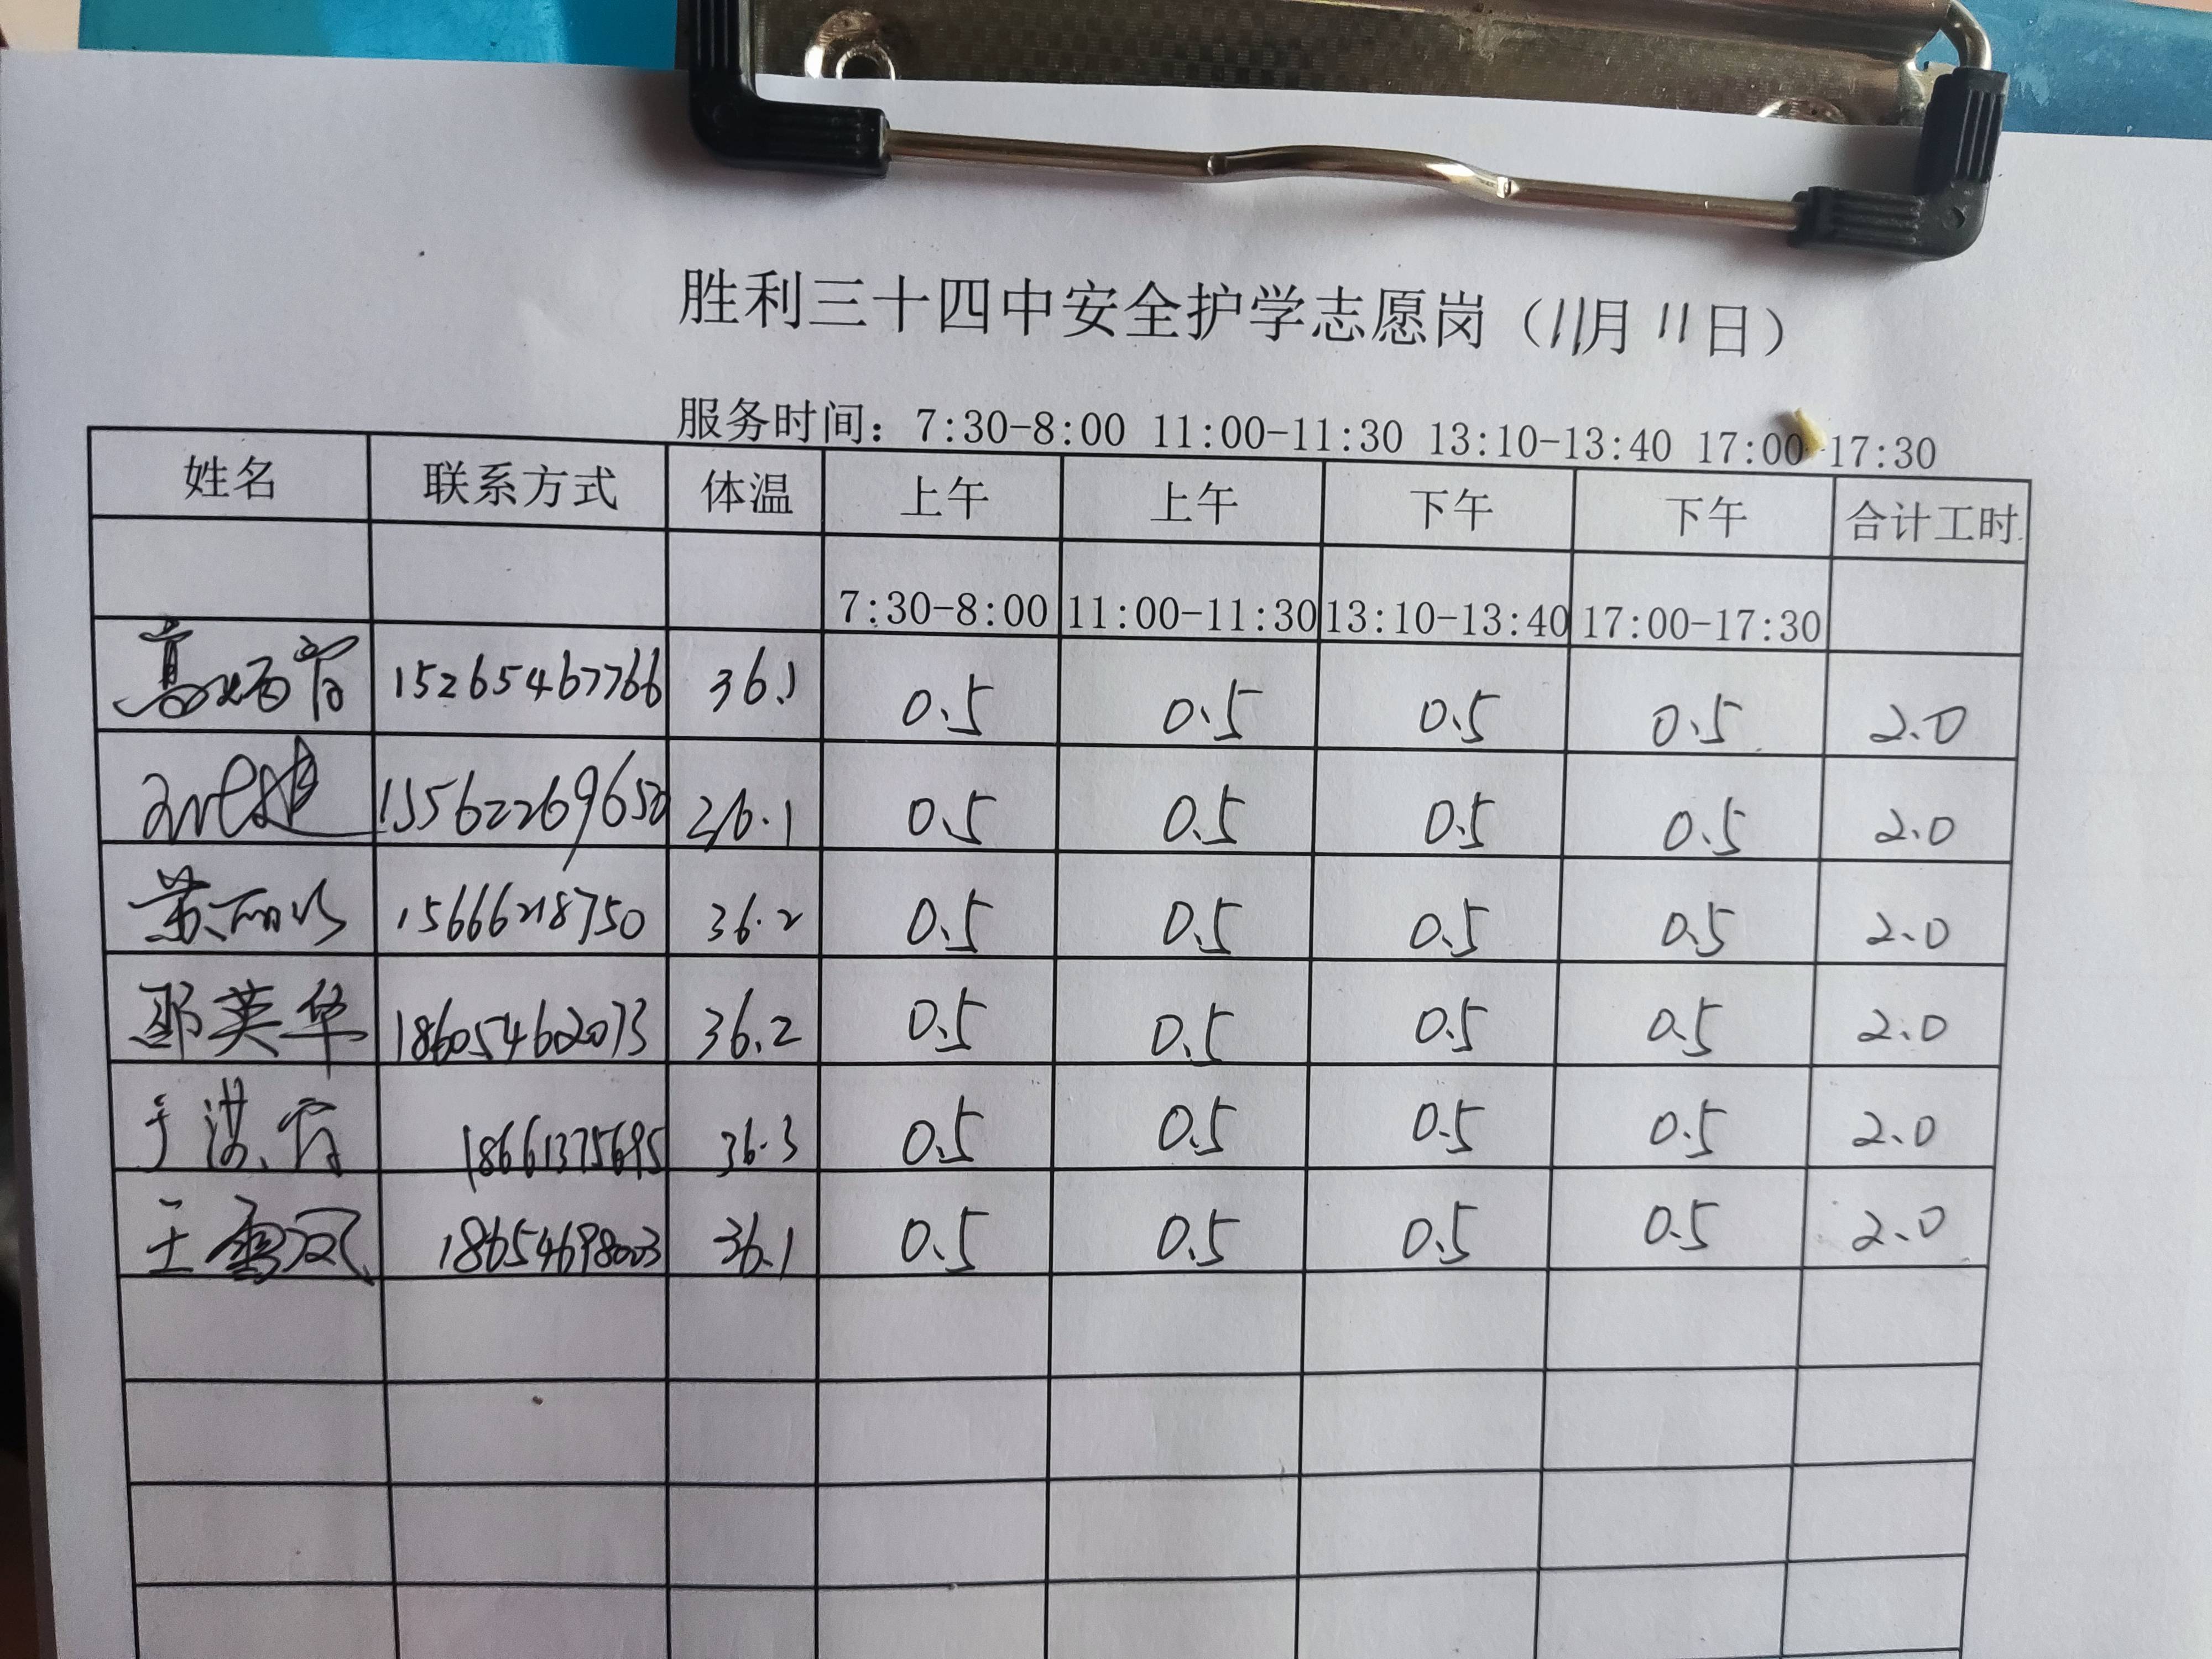 胜利三十四中安全护学志愿岗（11月11日）
服务时间：7:30-8:00 11:00-11:30 13:10-13:40 17:00 17:30
姓名 联系方式 体温 上午 上午 下午 下午 合计工时
7:30-8:00 11:00-11:30 13:10-13:40 17:00-17:30
15265467766 36.1 0.5 0.5 0.5 0.5 2.0
0.5 0.5 0.5 0.5 2.0
36.2 0.5 0.5 0.5 0.5 2.0
英华 18605462073 36.2 0.5 0.5 0.5 0.5 2.0
于 18661375695 36.3 0.5 0.5 0.5 0.5 2.0
王雪 18654698003 36.1 0.5 0.5 0.5 0.5 2.0